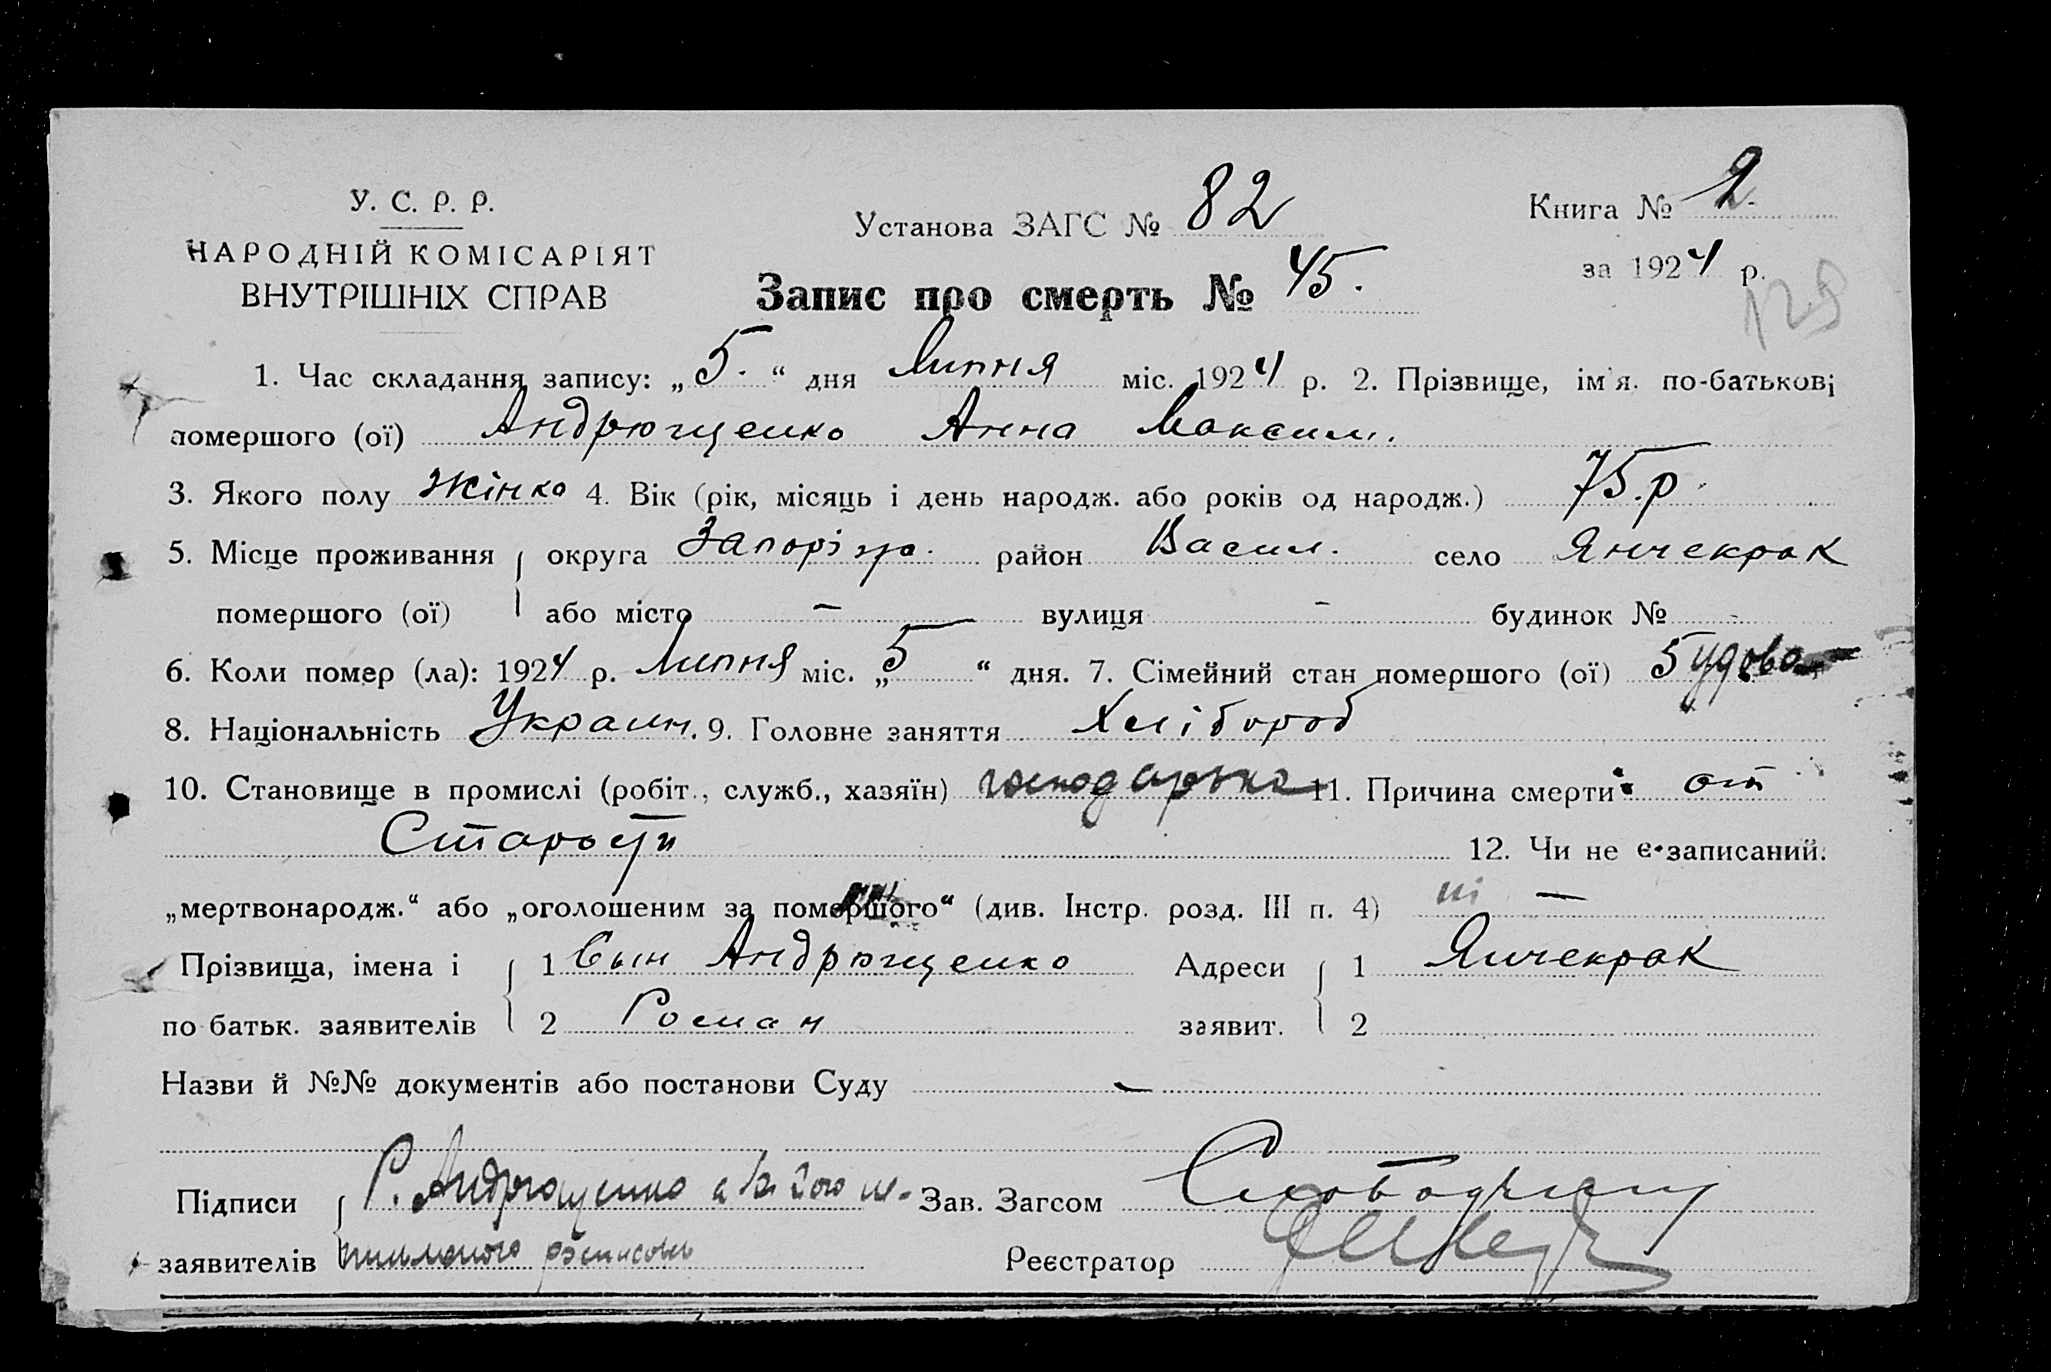 У. С. Р. Р.
НАРОДНІЙ КОМІСАРІЯТ
ВНУТРІШНІХ СПРАВ
Установа ЗАГС № 82
Запис про смерть № 45.
Книга № 2
за 1924 р.
129
1. Час складання запису: „5.“ дня Липня міс. 1924 р. 2. Прізвище, ім'я. по-батькові
помершого (ої) Андрющенко Анна Максим.
3. Якого полу жінка 4. Вік (рік, місяць і день народж. або років од народж.) 75.р.
5. Місце проживання округа Запоріз. район Васил. село Янчекрак
помершого (ої) або місто – вулиця - будинок № -
6. Коли помер (ла): 1924 р. Липня міс. „5“ дня. 7. Сімейний стан помершого (ої) удова
8. Національність Украин. 9. Головне заняття Хлібороб
10. Становище в промислі (робіт., служб., хазяїн) господарька 11. Причина смерти от
Старости 12. Чи не є записаний.
„мертвонародж.“ або „оголошеним за помершого“ (див. Інстр. розд. III п. 4) ні –
Прізвища, імена і 1 Сын Андрющенко Адреси 1 Янчекрак
по батьк. заявителів 2 Роман заявит. 2
Назви й №№ документів або постанови Суду –
Підписи Р. Андрющенко а за його не- Зав. Загсом
заявителів письмоного росписовсь Реєстратор